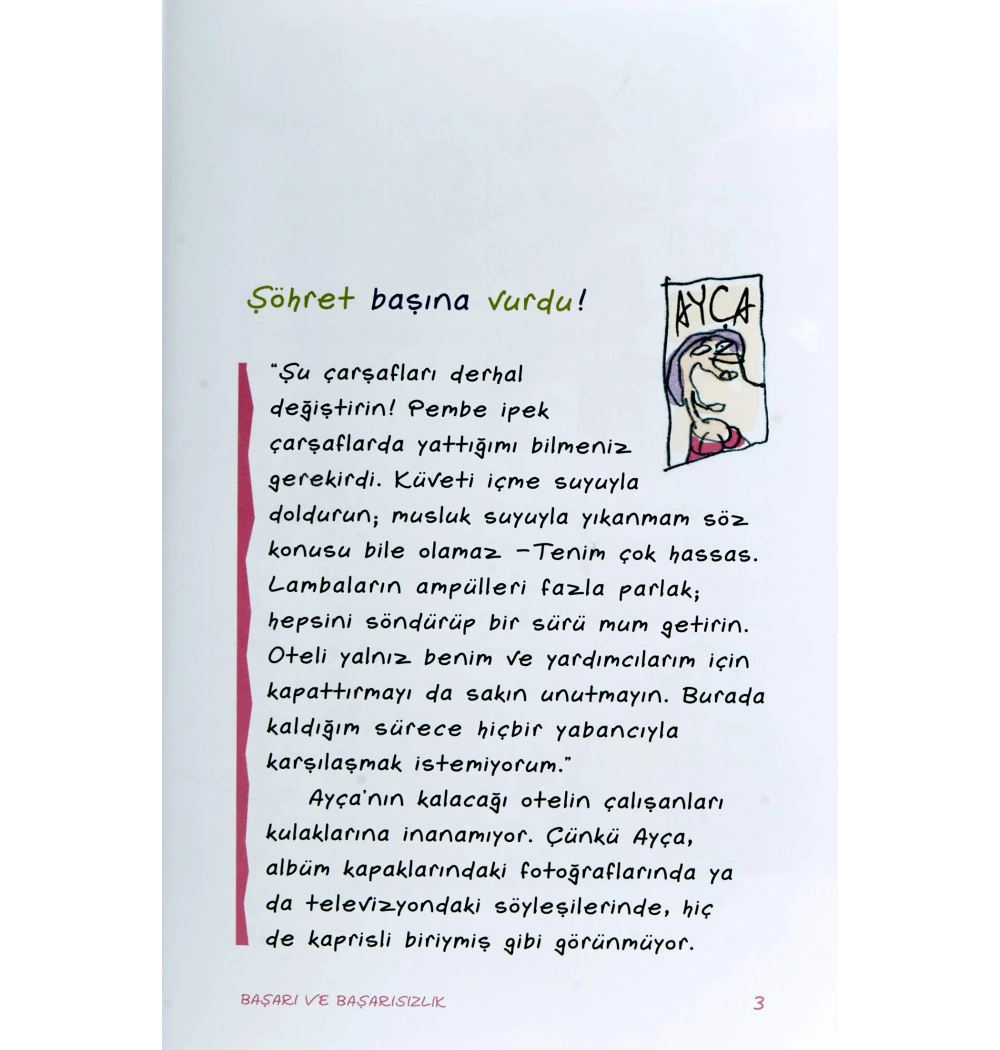 Şöhret başına vurdu!
AYÇA
"Şu çarşafları derhal
değiştirin! Pembe ipek
çarşaflarda yattığımı bilmeniz
gerekirdi. Küveti içme suyuyla
doldurun; musluk suyuyla yıkanmam söz
konusu bile olamaz –Tenim çok hassas.
Lambaların ampülleri fazla parlak;
hepsini söndürüp bir sürü mum getirin.
Oteli yalnız benim ve yardımcılarım için
kapattırmayı da sakın unutmayın. Burada
kaldığım sürece hiçbir yabancıyla
karşılaşmak istemiyorum."
Ayça'nın kalacağı otelin çalışanları
kulaklarına inanamıyor. Çünkü Ayça,
albüm kapaklarındaki fotoğraflarında ya
da televizyondaki söyleşilerinde, hiç
de kaprisli biriymiş gibi görünmüyor.
BAŞARI VE BAŞARISIZLIK 3